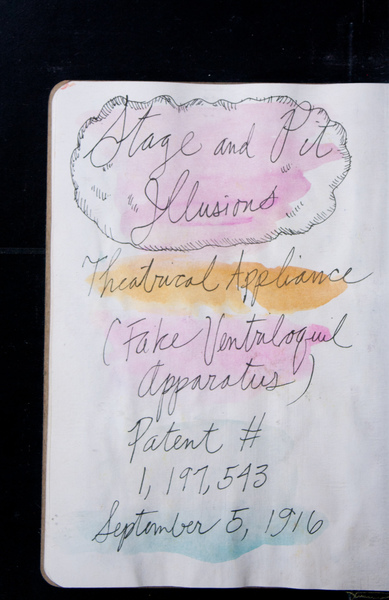 Stage and Pit
Illusions
Theatrical Appliance
(Fake Ventriloquil
Apparatus)
Patent #
1,197,543
September 5, 1916